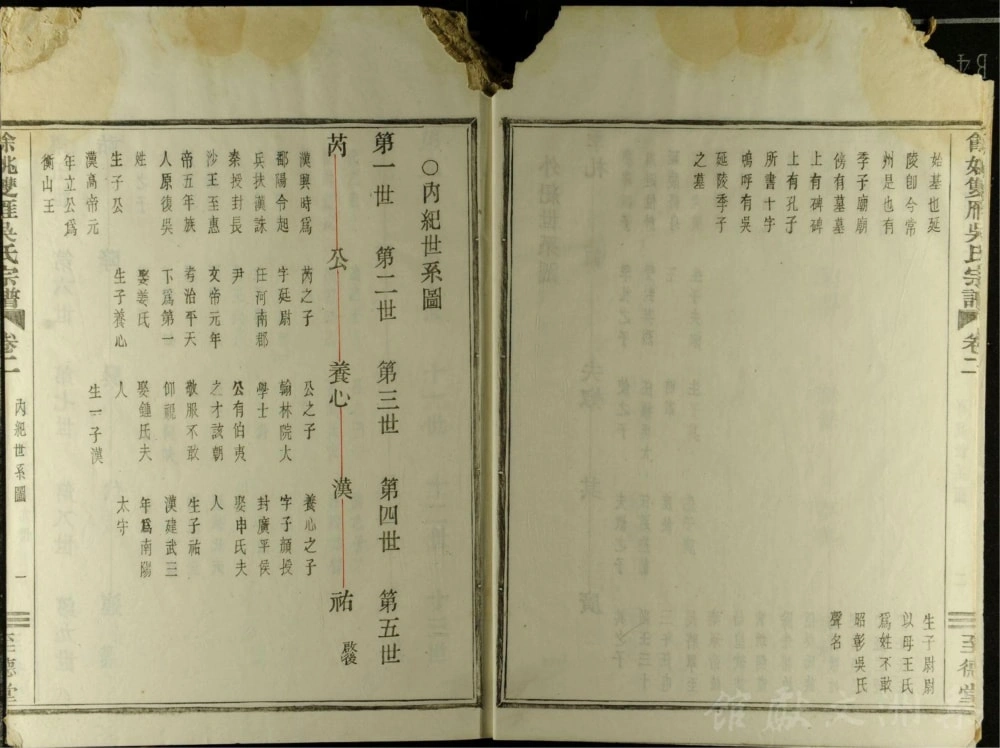 餘姚雙雁吳氏宗譜
卷二
二
至德堂
始基也延
陵卽今常
州是也有
季子廟廟
傍有墓墓
上有碑碑
上有孔子
所書十字
嗚呼有吳
延陵季子
之墓
生子尉尉
以母王氏
爲姓不敢
昭彰吳氏
聲名
○內紀世系圖
第一世
第二世
第三世
第四世
第五世
芮
公
養心
漢
祐
啟後
漢興時爲
鄱陽令起
兵扶漢誅
秦授封長
沙王至惠
帝五年族
人原復吳
姓
生子公
漢高帝元
年立公爲
衡山王
芮之子
字延尉
任河南郡
尹
文帝元年
考治平天
下爲第一
娶姜氏
生子養心
公之子
翰林院大
學士
公有伯夷
之才該朝
敬服不敢
仰視
娶鍾氏夫
人
生一子漢
養心之子
字子顏授
封廣平侯
娶申氏夫
人
生子祐
漢建武三
年爲南陽
太守
餘姚雙雁吳氏宗譜
卷二
內紀世系圖
一
至德堂